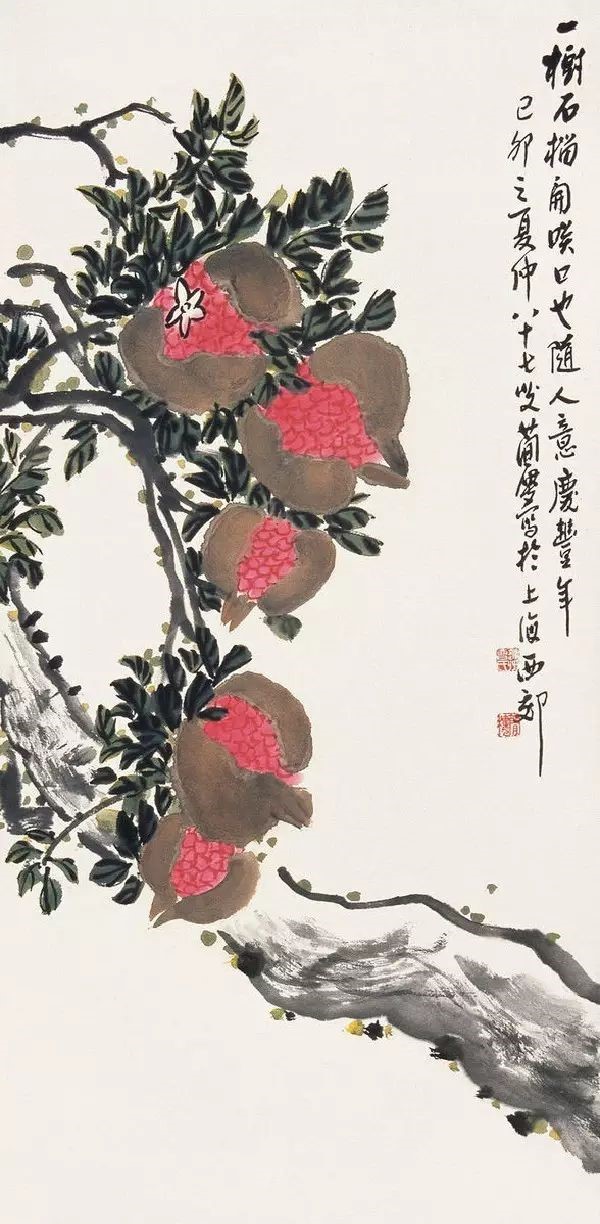 一樹石榴開咲口也隨人意慶豐年
己卯之夏仲八十七叟寫於上海西郊